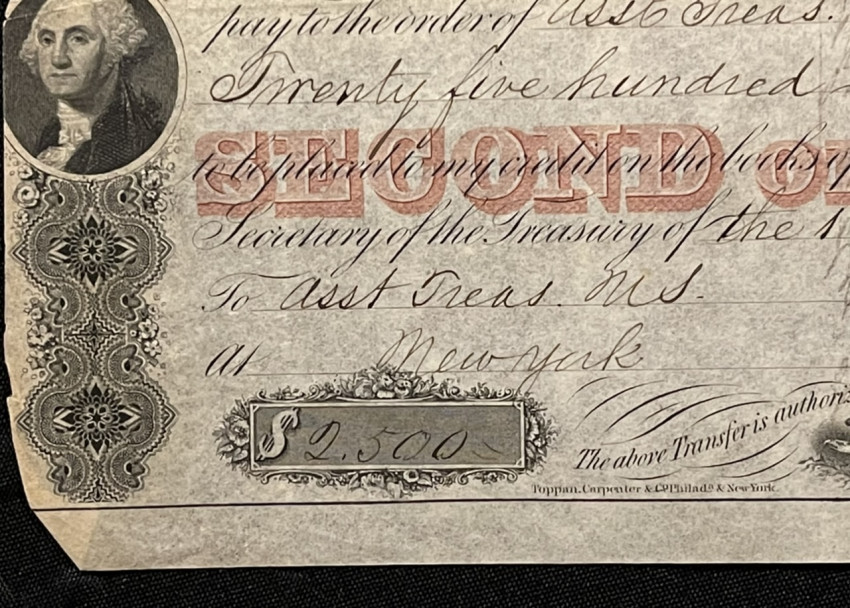 pay to the order of Asst Treas.
Twenty five hundred
SECOND
to be placed to my credit on the books of
Secretary of the Treasury of the 1
To Asst Treas. U.S.
At New York
$ 2.500-
The above Transfer is authoriz
Toppan, Carpenter & Co. Philada. & New York.